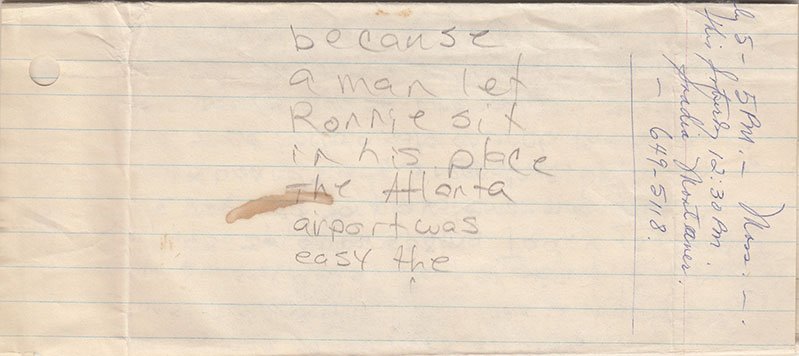 because
a man let
Ronnie sit
in his place
The Atlanta
airport was
easy the
5 - 5 PM. - Mass. -.
This Saturday 12:30 PM.
Montaner.
- 649-5118.